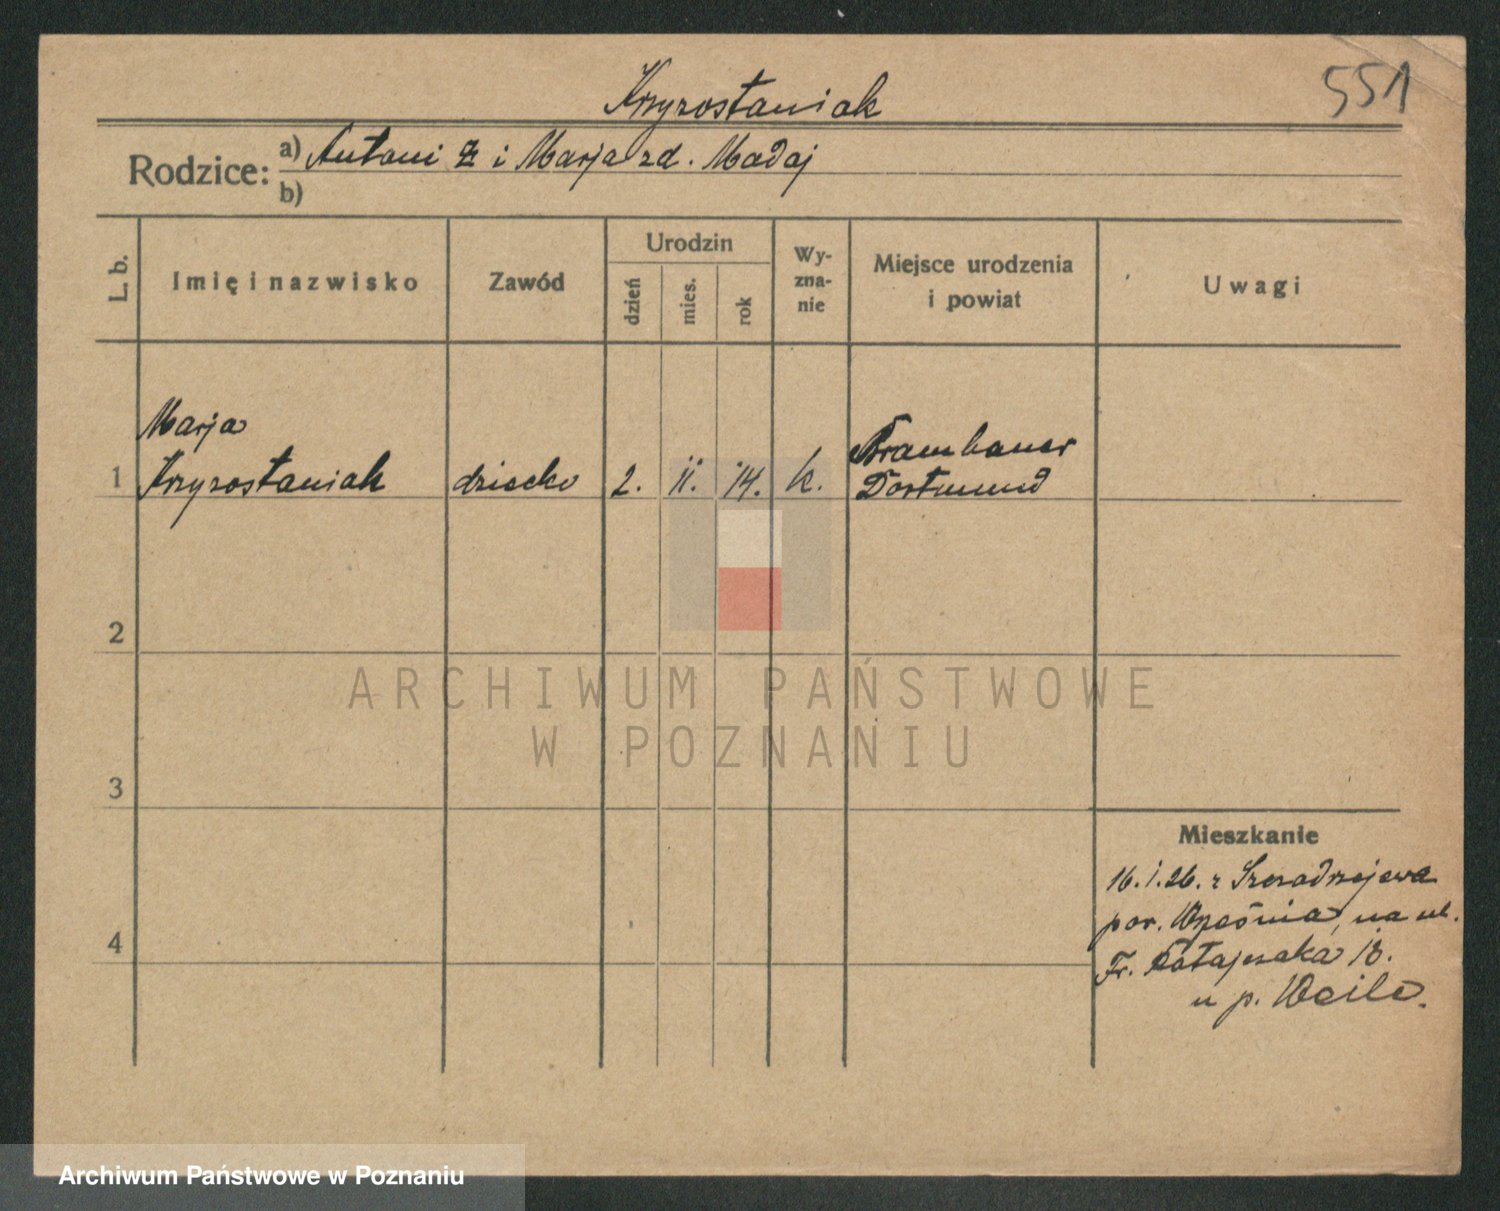 551
Krzyzostaniak
Rodzice:
a) Antoni i Marja zd. Madaj
b)
L. b.
Imię i nazwisko
Zawód
Urodzin
dzień
mies.
rok
Wy-
zna-
nie
Miejsce urodzenia
i powiat
Uwagi
Marja
1 Krzyzostaniak dziecko 2. II. 14. k. Brambauer
Dortmund
2
3
4
Mieszkanie
16.1.26. z
pow. Września, na ul.
Fr. Ratajczaka 18.
u p.
ARCHIWUM PAŃSTWOWE
W POZNANIU
Archiwum Państwowe w Poznaniu